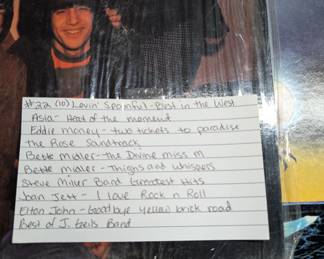 #22 (10) Lovin' Spoonful - Best in the West
Asia - Heat of the moment
Eddie money - two tickets to paradise
The Rose Soundtrack
Bette Midler - The Divine miss m
Bette midler - Thighs and whispers
Steve Miller Band Greatest Hits
Joan Jett - I love Rock n Roll
Elton John - Goodbye yellow brick road
Best of J. Geils Band